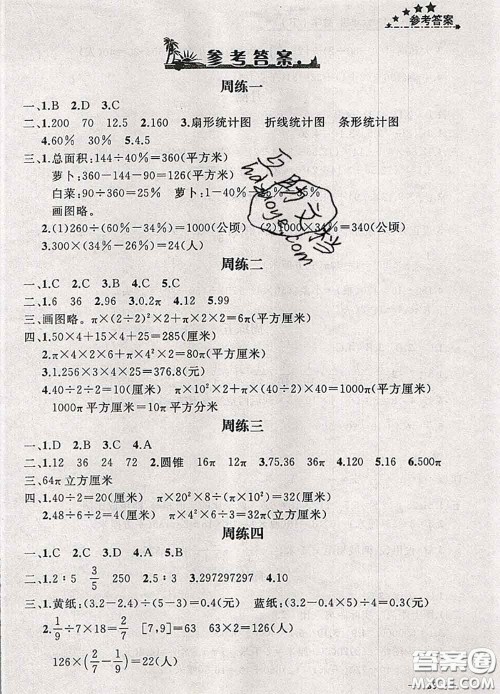 参考答案
参考答案
周练一
一、1.B 2.D 3.C
二、1.200 70 12.5 2.160 3.扇形统计图 折线统计图 条形统计图
4.60% 30% 5.4.5
三、1.总面积:144÷40%=360(平方米)
萝卜:360-144-90=126(平方米)
白菜:90÷360=25% 萝卜:1-40%-25%=35%
画图略。
2.(1)260÷(60%-34%)=1000(公顷) (2)1000×34%=340(公顷)
3.300×(34%-26%)=24(人)
周练二
一、1.C 2.C 3.B 4.C 5.C
二、1.6 36 2.96 3.0.2π 4.12 5.99
三、画图略。π×(2÷2)²×2+π×2×2=6π(平方厘米)
四、1.50×4+15×4+25=285(厘米)
2.π×4×2×6+π×4²×2=80π(平方厘米)
3.1.256×3×100=376.8(元)
4.40÷2÷2=10(厘米) π×10²×2+π×(40÷2)×40=1000π(平方厘米)
1000π平方厘米=10π平方分米
周练三
一、1.D 2.B 3.C 4.A
二、1.12 36 24 72 2.圆锥 16π 12π 3.75.36 36π 4.120π 5.36π 6.500π
三、64π立方厘米
四、1.40÷2=20(厘米) π×20²×8÷(π×8²)=50(厘米)
2.48÷6÷2=4(厘米) π×4²×6×1/3=32π(立方厘米)
周练四
一、1.C 2.D 3.A 4.A 5.B
二、1.2∶5 3/5 250 2.5 3.297297297 4.10
三、1.黄纸:(3.2-2.4)÷(5-3)=0.4(元) 蓝纸:(3.2-0.4×5)÷3=0.4(元)
2.1/9÷7×18=2/7 [7,9]=63 63×2=126(人)
126×(2/7-1/9)=22(人)